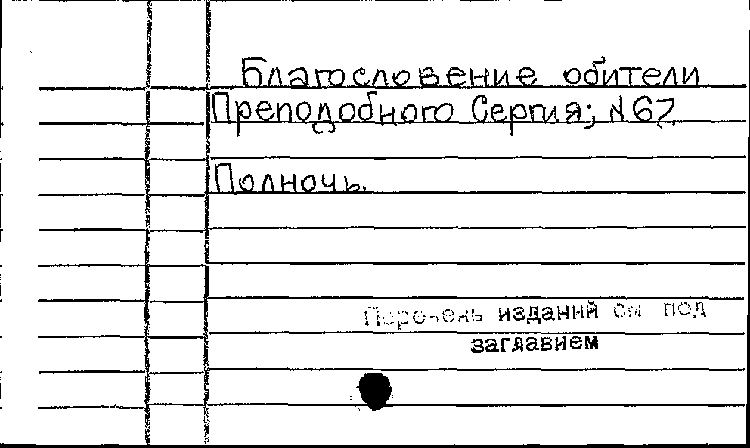 Благословение обители
Преподобного Сергия; №67
Полночь.
Перечень изданий см под
заглавием